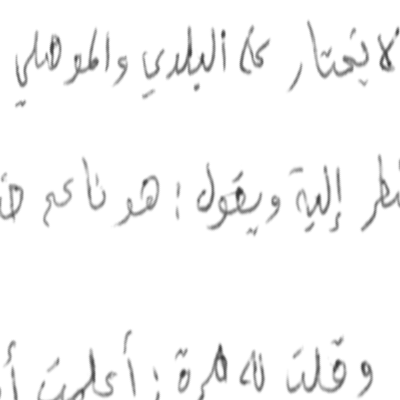 لا يختار على البلدي والموصلي
ينظر إليه ويقول: هو ناعم
وقلت له مرة: أعلمت